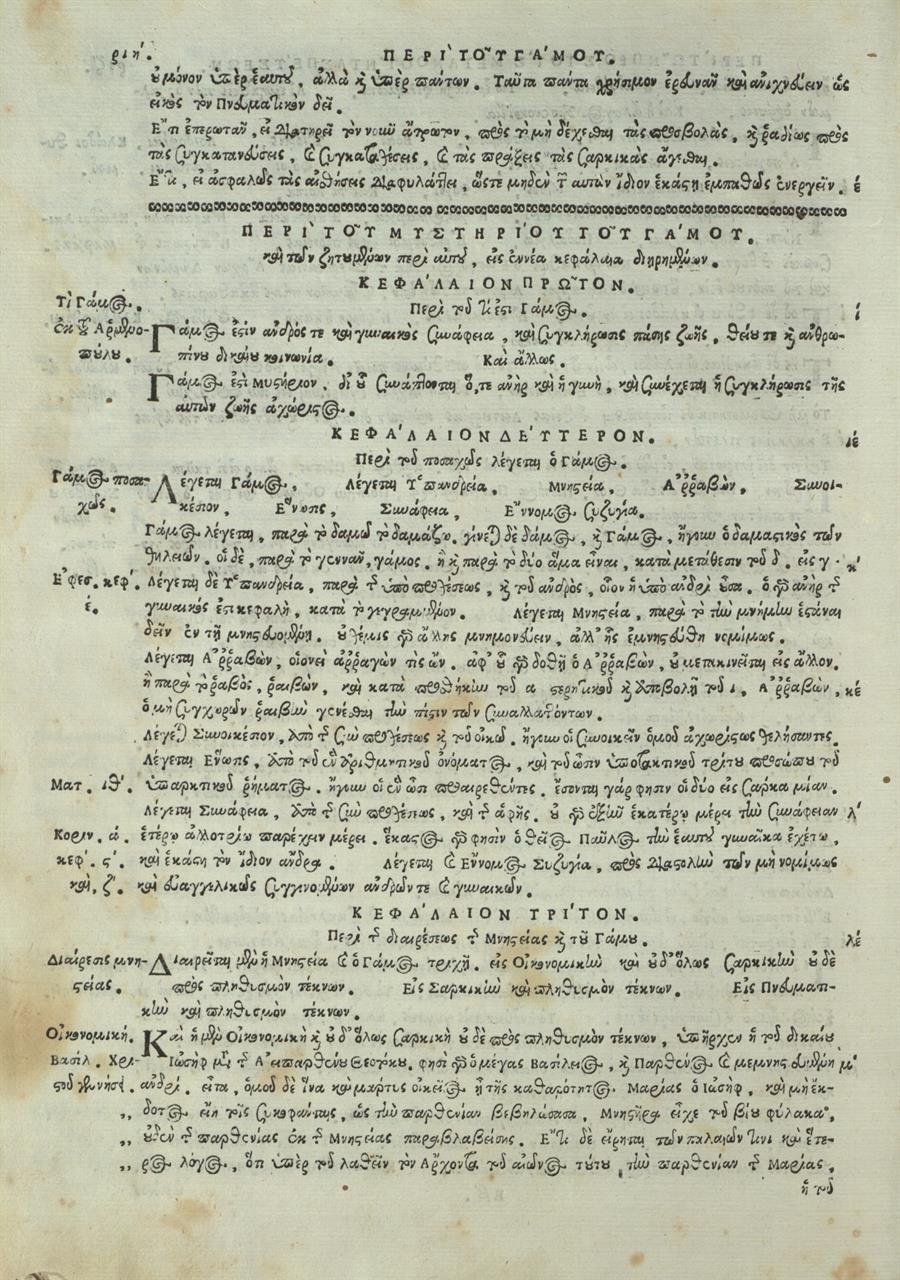 ριηʹ. ΠΕΡΙ ΤΟΥ ΓΑΜΟΥ.
οὐ μόνον ὑπὲρ ἑαυτοῦ, ἀλλὰ καὶ ὑπὲρ πάντων. Ταῦτα πάντα χρήσιμον ἐρευνᾶν καὶ ἀνιχνεύειν ὡς
εἰκὸς τὸν Πνευματικὸν δεῖ.
Ἔτι ἐπερωτᾶν, εἰ Διατηρεῖ τὸν νοῦν ἄτρωτον, πρὸς τὸ μὴ δέχεσθαι τὰς προσβολὰς, καὶ ῥαδίως πρὸς
τὰς Συγκατανεύσεις, καὶ Συγκαταθέσεις, καὶ τὰς πράξεις τὰς Σαρκικὰς ἄγεσθαι.
Ἔτι, εἰ ἀσφαλῶς τὰς αἰσθήσεις Διαφυλάττει, ὥστε μηδὲν τῶν αὐτῶν ἴδιον ἑκάστη ἐμπαθῶς ἐνεργεῖν. έ
ΠΕΡΙ ΤΟΥ ΜΥΣΤΗΡΙΟΥ ΤΟΥ ΓΑΜΟΥ.
καὶ τῶν ζητουμένων περὶ αὐτοῦ, εἰς ἐννέα κεφάλαια διῃρημένων.
ΚΕΦΑΛΑΙΟΝ ΠΡΩΤΟΝ.
Τί Γάμος. Περὶ τοῦ τί ἐστι Γάμος. ί
ἐκ τοῦ Ἁρμενο- Γάμος ἐστὶν ἀνδρός τε καὶ γυναικὸς Συνάφεια, καὶ Συγκλήρωσις πάσης ζωῆς, θείου τε καὶ ἀνθρω-
πούλου. πίνου δικαίου κοινωνία. Καὶ ἄλλως.
Γάμος ἐστὶ Μυστήριον, δι' οὗ Συνάπτονται ὅ,τε ἀνὴρ καὶ ἡ γυνὴ, καὶ Συνέχεται ἡ Συγκλήρωσις τῆς
αὐτῶν ζωῆς ἀχώριστος.
ΚΕΦΑΛΑΙΟΝ ΔΕΥΤΕΡΟΝ. ιέ
Περὶ τοῦ ποσαχῶς λέγεται ὁ Γάμος.
Γάμος ποσα- Λέγεται Γάμος, Λέγεται Ὑπανδρεία, Μνηστεία, Ἀῤῥαβὼν, Συνοι-
χῶς. κέσιον, Ἕνωσις, Συνάφεια, Ἔννομος Συζυγία.
Γάμος λέγεται, παρὰ τὸ δαμῶ τὸ δαμάζω. γίνεται δὲ δάμος, καὶ Γάμος, ἤγουν ὁ δαμαστικὸς τῶν
θηλειῶν. οἱ δὲ, παρὰ τὸ γεννᾶν, γάμος. ἢ καὶ παρὰ τὸ δύο ἅμα εἶναι, κατὰ μετάθεσιν τοῦ δ. εἰς γ. κʹ
Ἐφεσ. κεφ. Λέγεται δὲ Ὑπανδρεία, παρὰ τῆς ὑπὸ προθέσεως, καὶ τοῦ ἀνδρὸς, οἷον ἡ ὑπὸ ἀνδρὶ οὖσα. ὁ γὰρ ἀνὴρ τῆς
έ. γυναικός ἐστι κεφαλὴ, κατὰ τὸ γεγραμμένον. Λέγεται Μνηστεία, παρὰ τὸ τὴν μνήμην ἑστάναι
δεῖν ἐν τῇ μνηστευομένῃ. οὐ θέμις γὰρ ἄλλης μνημονεύειν, ἀλλ' ἧς ἐμνηστεύθη νομίμως.
Λέγεται Ἀῤῥαβὼν, οἱονεὶ ἀῤῥαγών τις ὤν. ἀφ' οὗ γὰρ δοθῇ ὁ Ἀῤῥαβὼν, οὐ μετακινεῖται εἰς ἄλλον.
ἢ παρὰ τὸ ῥαβὸς, ῥαιβὼν, καὶ κατὰ προσθήκην τοῦ α στερητικοῦ καὶ ἀποβολῇ τοῦ ι, Ἀῤῥαβὼν, κέ
ὁ μὴ Συγχωρῶν ῥαιβὴν γενέσθαι τὴν πίστιν τῶν Συναλλαττόντων.
Λέγεται Συνοικέσιον, ἀπὸ τῆς Σὺν προθέσεως καὶ τοῦ οἰκῶ. ἤγουν οἱ Συνοικεῖν ὁμοῦ ἀχωρίστως θελήσαντες.
Λέγεται Ἕνωσις, ἀπὸ τοῦ ἓν ἀριθμητικοῦ ὀνόματος, καὶ τοῦ ὦσιν ὑποτακτικοῦ τρίτου προσώπου τοῦ
Ματ. ιθʹ. ὑπαρκτικοῦ ῥήματος. ἤγουν οἱ ἓν ὦσι προαιρεθέντες. ἔσονται γάρ φησιν οἱ δύο εἰς Σάρκα μίαν.
Λέγεται Συνάφεια, ἀπὸ τῆς Σὺν προθέσεως, καὶ τῆς ἁφῆς. οὐ γὰρ ἐξὸν ἑκατέρῳ μέρει τὴν Συνάφειαν λʹ
Κοριν. ά. ἑτέρῳ ἀλλοτρίῳ παρέχειν μέρει. ἕκαστος γὰρ φησὶν ὁ θεῖος Παῦλος τὴν ἑαυτοῦ γυναῖκα ἐχέτω,
κεφ. ςʹ. καὶ ἑκάστη τὸν ἴδιον ἄνδρα. Λέγεται καὶ Ἔννομος Συζυγία, πρὸς Διαστολὴν τῶν μὴ νομίμως
καὶ, ζʹ. καὶ εὐαγγελικῶς Συγγινομένων ἀνδρῶν τε καὶ γυναικῶν.
ΚΕΦΑΛΑΙΟΝ ΤΡΙΤΟΝ.
Περὶ τῆς διαιρέσεως τῆς Μνηστείας καὶ τοῦ Γάμου. λέ
Διαίρεσις μνη- Διαιρεῖται μὲν ἡ Μνηστεία καὶ ὁ Γάμος τριχῇ. εἰς Οἰκονομικὴν καὶ οὐδ' ὅλως Σαρκικὴν οὐδὲ
στείας. πρὸς πληθισμὸν τέκνων. Εἰς Σαρκικὴν καὶ πληθισμὸν τέκνων. Εἰς Πνευματι-
κὴν καὶ πληθισμὸν τέκνων.
Οἰκονομική. Καὶ ἡ μὲν Οἰκονομικὴ καὶ οὐδ' ὅλως Σαρκικὴ οὐδὲ πρὸς πληθισμὸν τέκνων, ὑπῆρχεν ἡ τοῦ δικαίου
Βασίλ. Χρι- Ἰωσὴφ μετὰ τῆς Ἀειπαρθένου Θεοτόκου. φησὶ γὰρ ὁ μέγας Βασίλειος, καὶ Παρθένος καὶ μεμνηστευμένη μʹ
στοῦ γεννήσ. ἀνδρί. εἶτα, ὁμοῦ δὲ ἵνα καὶ μάρτυς οἰκεῖος ᾖ τῆς καθαρότητος Μαρίας ὁ Ἰωσὴφ, καὶ μὴ ἔκ-
,, δοτος εἴη τοῖς Συκοφάνταις, ὡς τὴν παρθενίαν βεβηλώσασα, Μνηστῆρα εἶχε τοῦ βίου φύλακα,
,, οὐδὲν τῆς παρθενίας ἐκ τῆς Μνηστείας παραβλαβείσης. Ἔτι δὲ εἴρηται τῶν παλαιῶν τινι καὶ ἕτε-
,, ρος λόγος, ὅτι ὑπὲρ τοῦ λαθεῖν τὸν Ἄρχοντα τοῦ αἰῶνος τούτου, τὴν παρθενίαν τῆς Μαρίας,
ἡ τοῦ